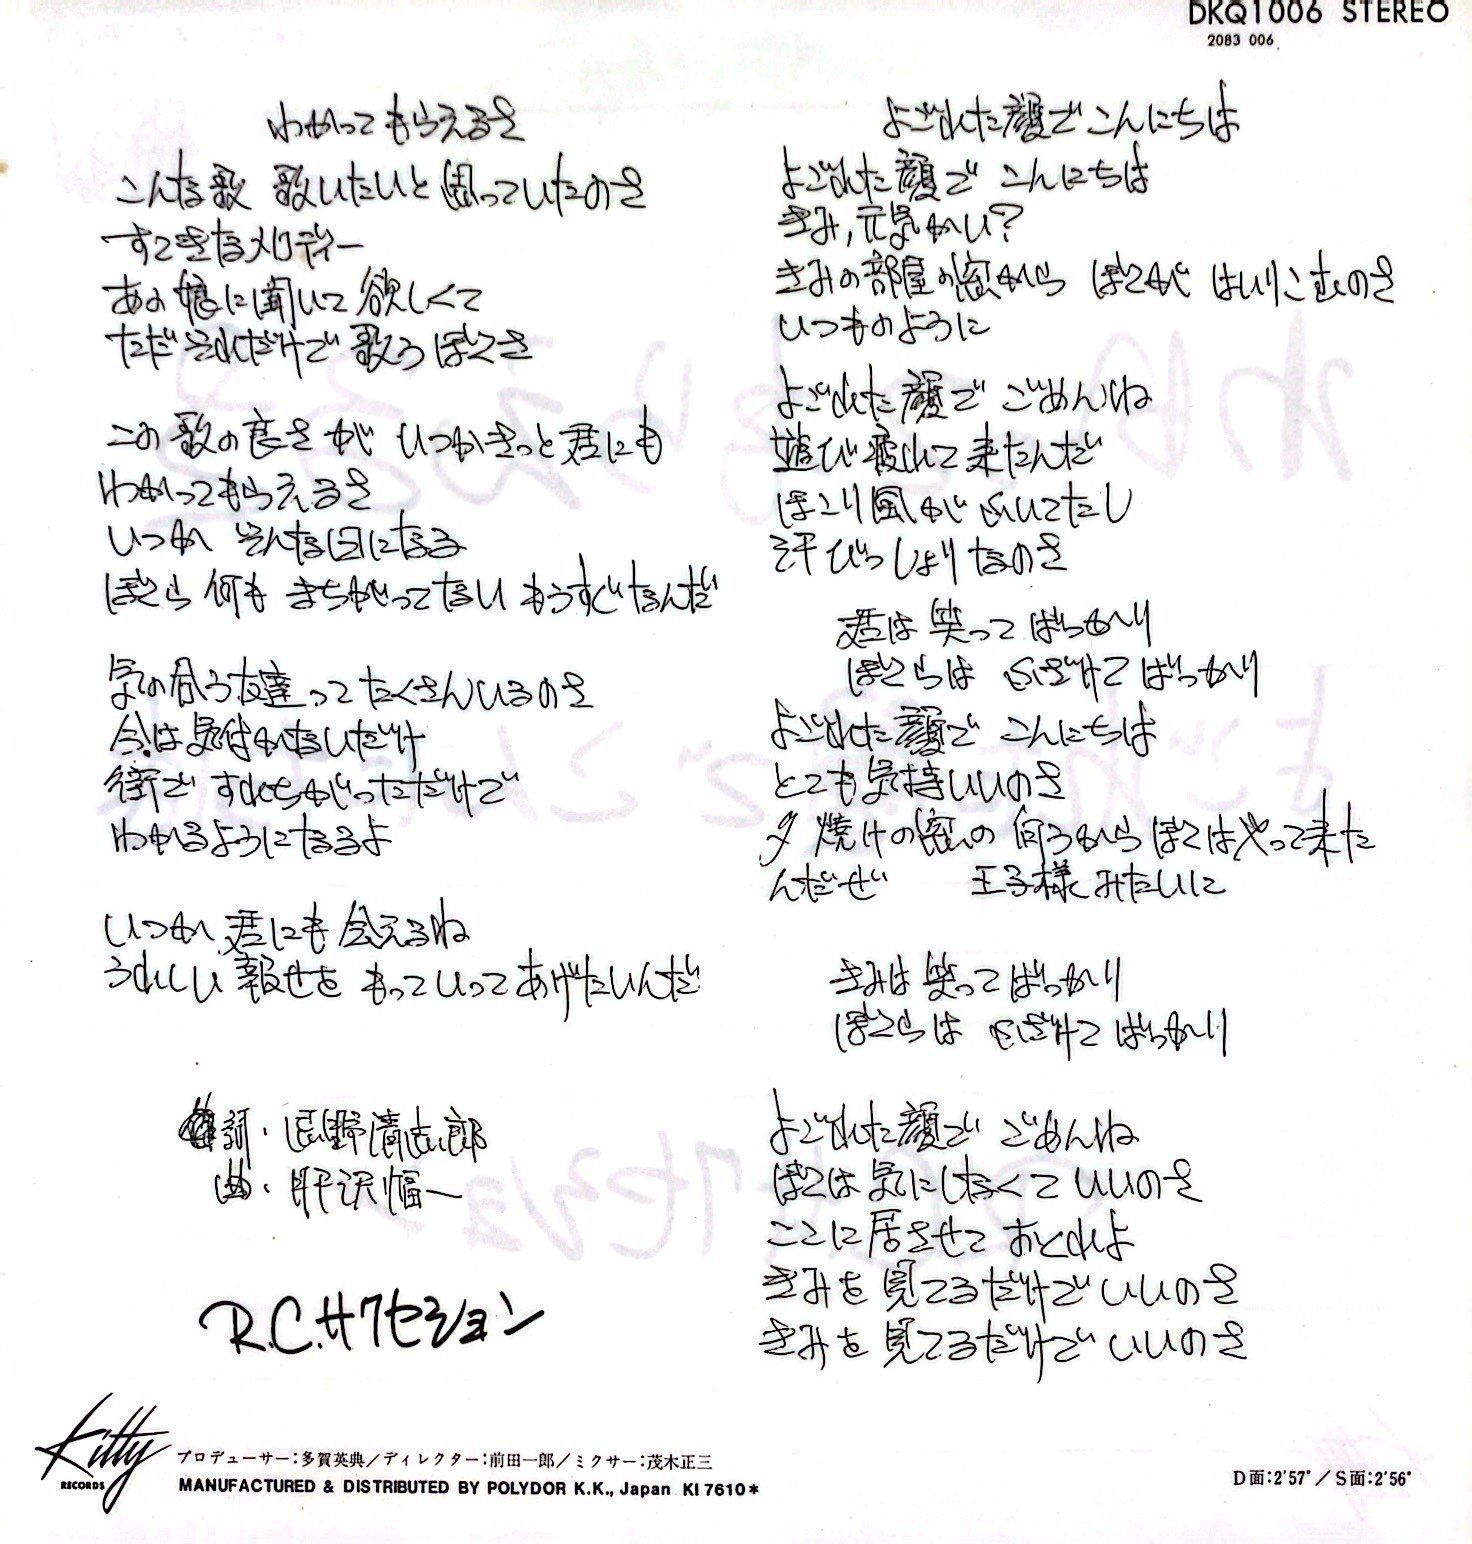 DKQ1006 STEREO
2083 006
わかってもらえるさ
こんな歌 歌いたいと思っていたのさ
すてきなメロディー
あの娘に聞いて欲しくて
ただそれだけで歌うぼくさ
この歌の良さが いつかきっと君にも
わかってもらえるさ
いつか そんな日になる
ぼくら何も まちがってない もうすぐなんだ
気の合う友達って たくさんいるのさ
今は気付かないだけ
街で すれちがっただけで
わかるようになるよ
いつか 君にも 会えるね
うれしい 報せを もっていってあげたいんだ
作詞・忌野清志郎
曲・肝沢幅一
R.C.サクセション
よごれた顔でこんにちは
よごれた顔で こんにちは
きみ,元気かい?
きみの部屋の窓から ぼくが はいりこむのさ
いつものように
よごれた顔で ごめんね
遊び疲れて来たんだ
ほこり風が ふいてたし
汗びっしょりなのさ
君は笑って ばっかり
ぼくらは ふざけて ばっかり
よごれた顔で こんにちは
とても気持いいのさ
夕焼けの窓の 向うから ぼくはやって来た
んだぜ 王子様みたいに
きみは笑って ばっかり
ぼくらは ふざけて ばっかり
よごれた顔で ごめんね
ぼくは気にしなくて いいのさ
ここに居させて おくれよ
きみを見てるだけで いいのさ
きみを見てるだけで いいのさ
Kitty
RECORDS
プロデューサー:多賀英典/ディレクター:前田一郎/ミクサー:茂木正三
MANUFACTURED & DISTRIBUTED BY POLYDOR K.K., Japan KI 7610*
D面:2'57"/S面:2'56"